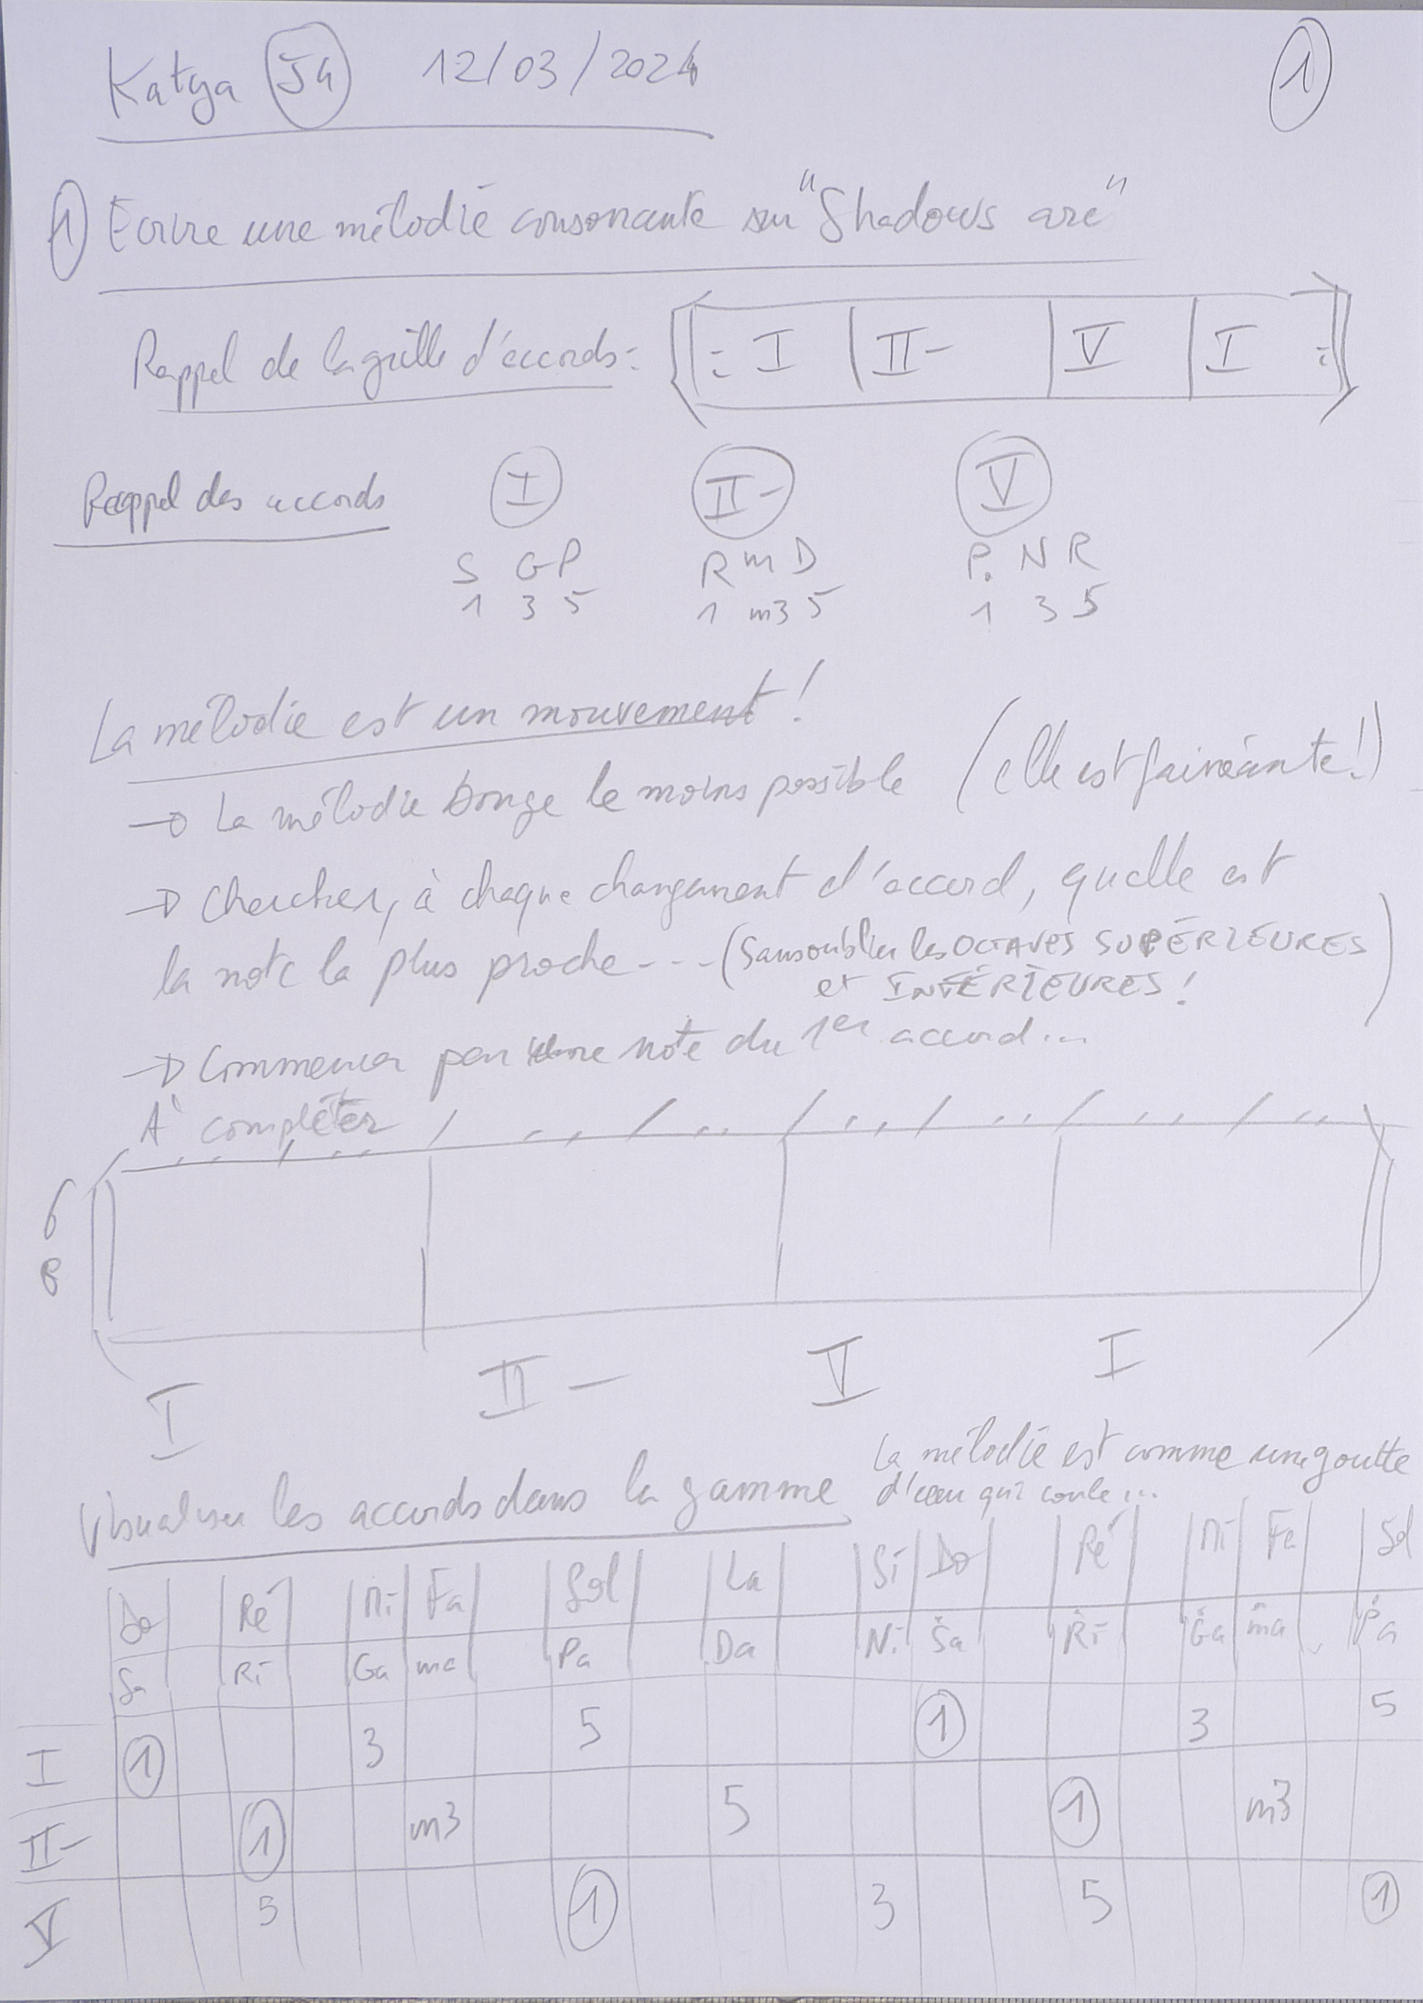 Katya 54 12/03/2024 1
1 Ecrire une mélodie consonante sur "Shadows are"
Rappel de la grille d'accords: : I II- V I :
Rappel des accords I II- V
S G P R m D P. N R
1 3 5 1 m3 5 1 3 5
La mélodie est un mouvement!
→ La mélodie bouge le moins possible (elle est fainéante!)
→ Chercher, à chaque changement d'accord, quelle est
la note la plus proche --- (Sans oublier les OCTAVES SUPÉRIEURES
et INFÉRIEURES!)
→ Commencer par une note du 1er accord...
A compléter
6
8
I II- V I
Visualiser les accords dans la gamme
La mélodie est comme une goutte
d'eau qui coule...
Do Ré Mi Fa Sol La Si Do Ré Mi Fa Sol
Sa Ri Ga ma Pa Da Ni Sa Ri Ga ma Pa
I 1 3 5 1 3 5
II- 1 m3 5 1 m3
V 5 1 3 5 1